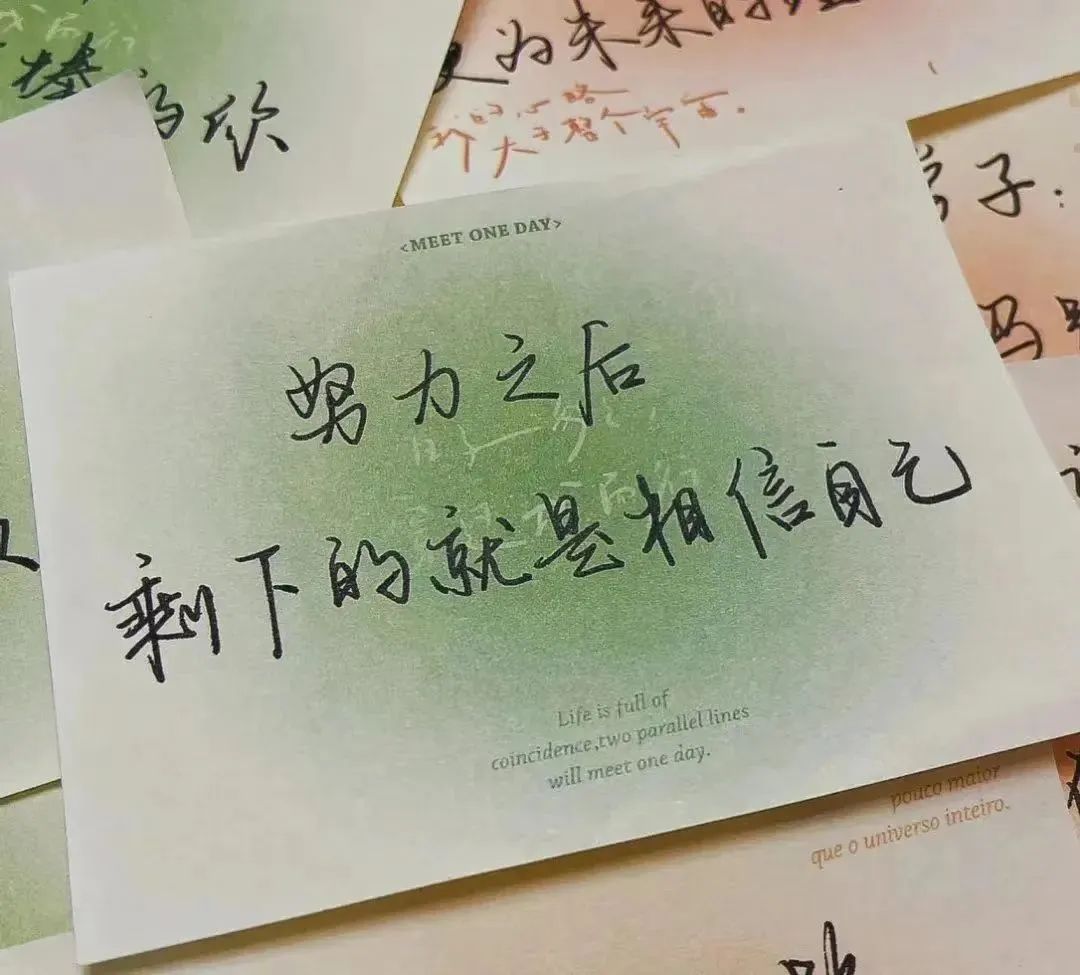 为未来的
我的心略
大于整个宇宙.
<MEET ONE DAY>
努力之后
剩下的就是相信自己
Life is full of
coincidence,two parallel lines
will meet one day.
pouco maior
que o universo inteiro.
子: